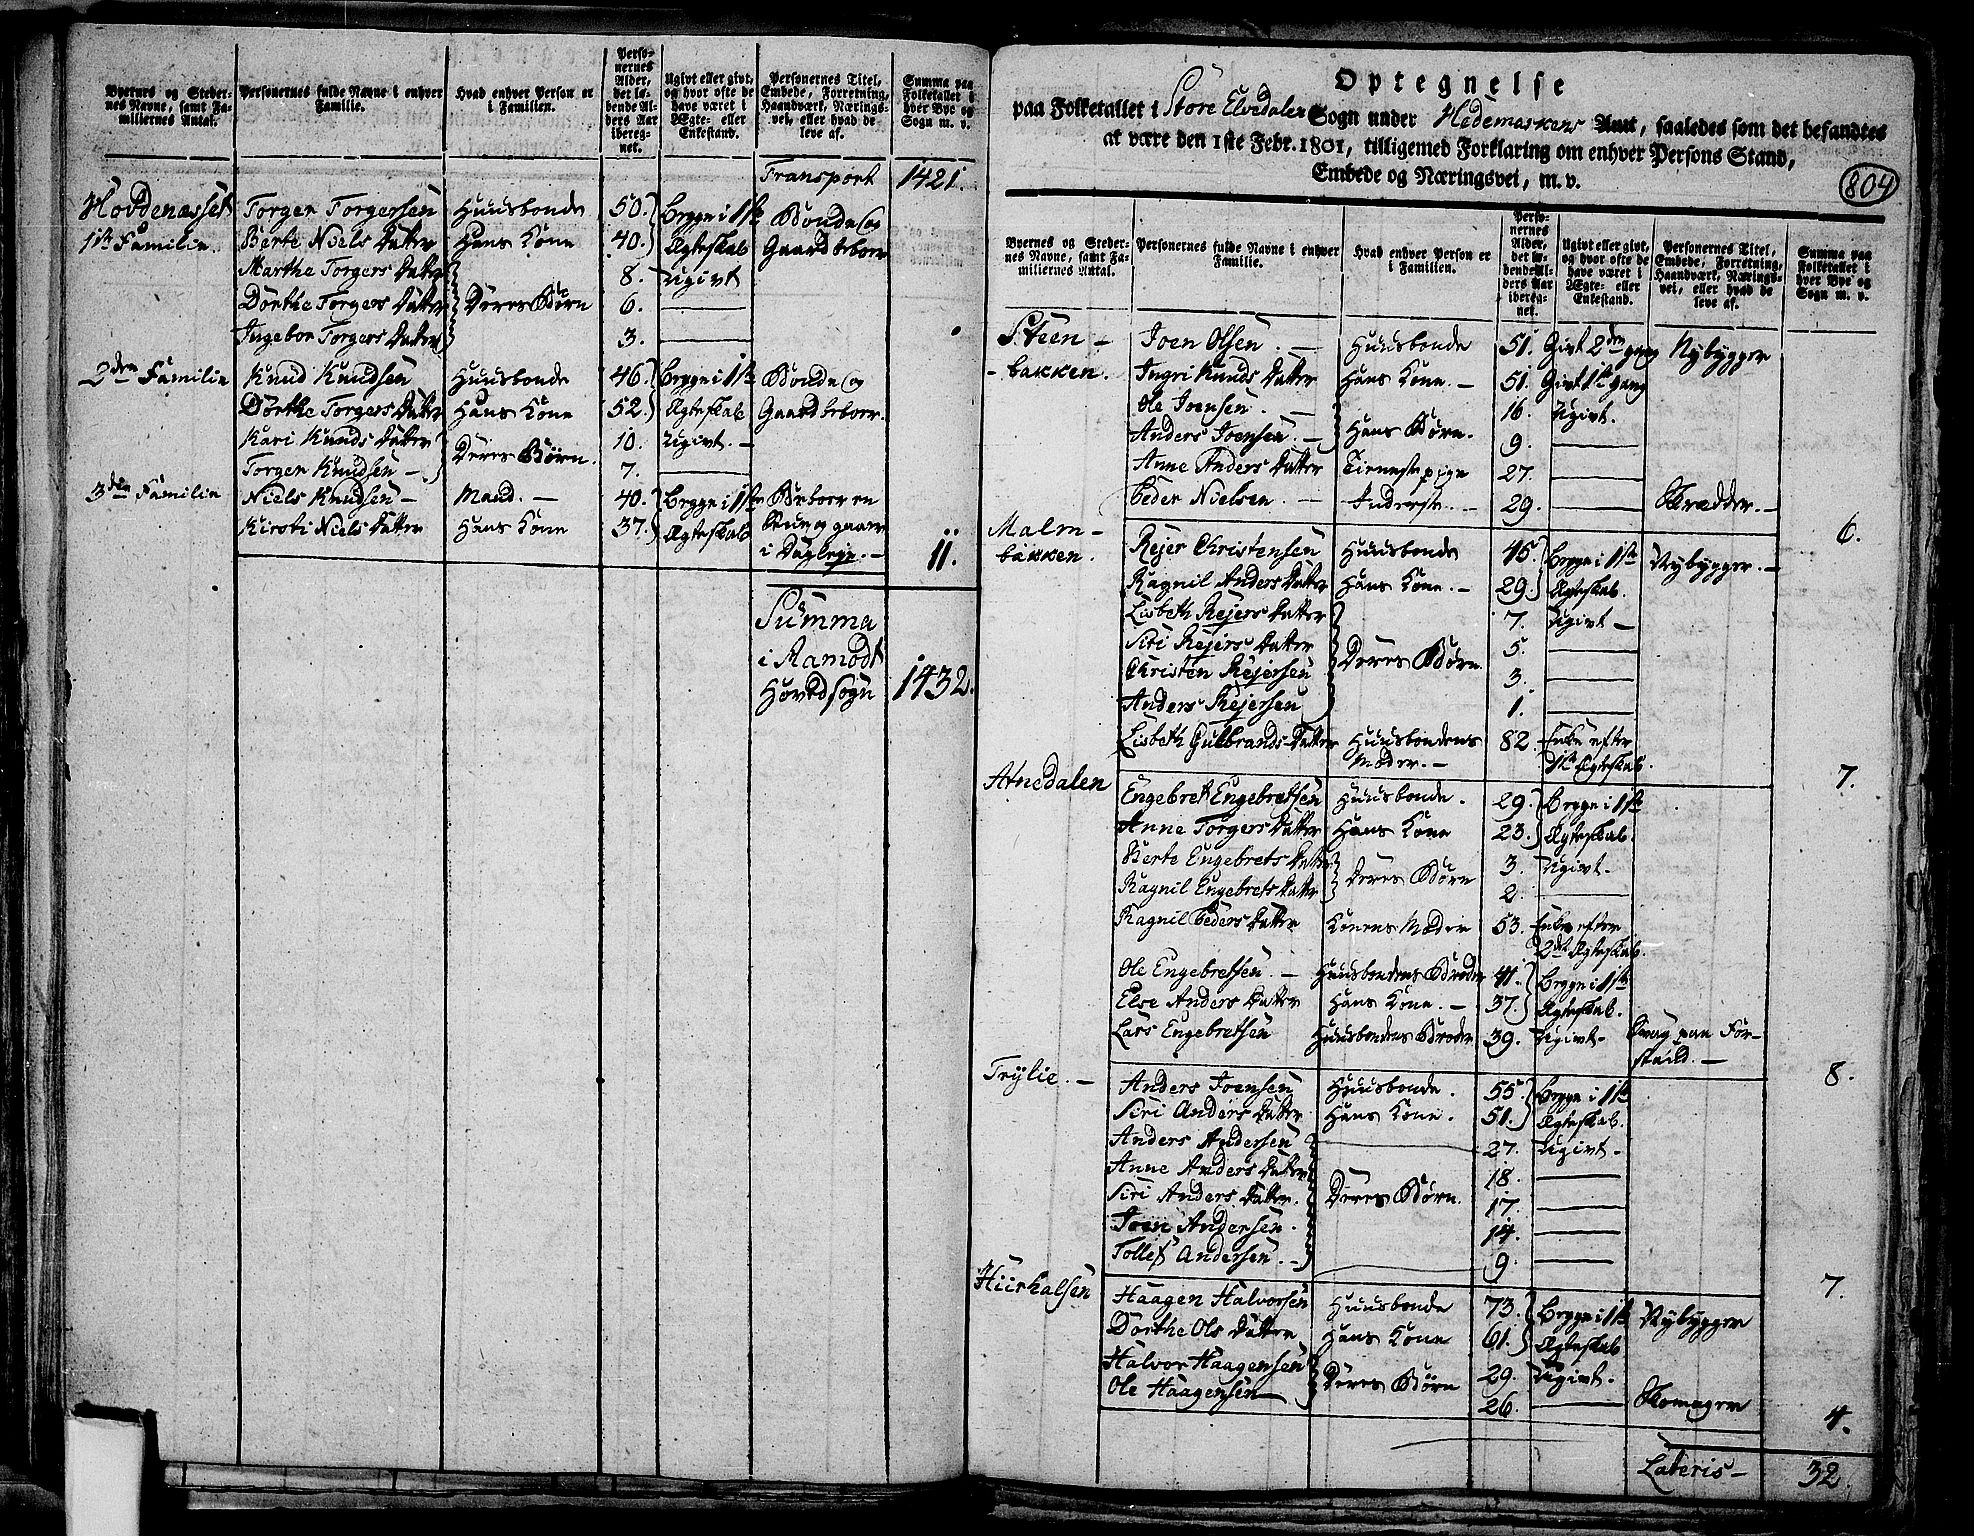 Byernes og Steder-
nes Navne, samt Fa-
miliernes Antal.
Personernes fulde Navne i enhver
Familie.
Hvad enhver Person er
i Familien.
Perso-
nernes
Alder,
det lø-
bende Al-
ders Aar
ibereg-
net.
Ugivt eller givt,
og hvor ofte de
have været i
Ægte- eller
Enkestand.
Personernes Titel,
Embede, Forretning,
Haandværk, Nærings-
vei, eller hvad de
leve af.
Summa paa
Folketallet i
hver Bye og
Sogn m. v.
Transport 1421.
Hovdenæsset Torger Torgersen Huusbonde 50. Begge i 1ste Bonde og
1ste Familie. Berte Niels Datter Hans Kone 40. Ægteskab Gaardbeboer
Marthe Torgers Datter 8. Ugivt
Dorthe Torgers Datter Deres Børn 6.
Ingebor Torgers Datter 3.
2den Familie Knud Knudsen Huusbonde 46. Begge i 1ste Bonde og
Dorthe Torgers Datter Hans Kone 52. Ægteskab Gaardbeboer.
Kari Knuds Datter Deres Børn. 10. Ugivt. —
Torger Knudsen — 7.
3die Familie Niels Knudsen — Mand. — 40. Begge i 1ste Beboer en
Kirsti Niels Datter Hans Kone 37. Ægteskab Stue og gaaer
i Dagleje. — 11.
Summa
i Aamodt
Hovedsogn 1432.
Optegnelse
paa Folketallet i Store Elvedalen Sogn under Hedemarkens Amt, saaledes som det befandtes
at være den 1ste Febr. 1801, tilligemed Forklaring om enhver Persons Stand,
Embede og Næringsvei, m. v.
804
Byernes og Steder-
nes Navne, samt Fa-
miliernes Antal.
Personernes fulde Navne i enhver
Familie.
Hvad enhver Person er
i Familien.
Perso-
nernes
Alder,
det lø-
bende Al-
ders Aar
ibereg-
net.
Ugivt eller givt,
og hvor ofte de
have været i
Ægte- eller
Enkestand.
Personernes Titel,
Embede, Forretning,
Haandværk, Nærings-
vei, eller hvad de
leve af.
Summa paa
Folketallet i
hver Bye og
Sogn m. v.
Steen — Joen Olsen. — Huusbonde 51. Givt 2den gang Nybygger
- bakken. Ingri Knuds Datter Hans Kone. — 51. Givt 1ste Gang
Ole Joensen. — 16. Ugivt.
Anders Joensen. — Hans Børn. 9.
Anne Anders Datter Tienestepige 27.
Peder Nielsen. — Inderste. — 29. Skrædder. —
6.
Malm- Rejer Christensen Huusbonde 45. Begge i 1ste Nybygger. —
bakken. Ragnil Anders Datter Hans Kone. — 29. Ægteskab.
Lisbeth Rejers Datter 7. Ugivt —
Siri Rejers Datter 5.
Christen Rejersen Deres Børn 3.
Anders Rejersen 1.
Lisbeth Gulbrands Datter Huusbondens 82. Enke efter
Moder. — 1ste Ægteskab.
7.
Atnedalen Engebret Engebretsen Huusbonde. 29. Begge i 1ste
Anne Torgers Datter Hans Kone 23. Ægteskab.
Berte Engebrets Datter 3. Ugivt.
Ragnil Engebrets Datter Deres Børn 2.
Ragnil Peders Datter Konens Moder 53. Enke efter
2det Ægteskab.
Ole Engebretsen. — Huusbondens Broder 41. Begge i 1ste
Else Anders Datter Hans Kone. — 37. Ægteskab.
Lars Engebretsen Huusbondens Broder 39. Ugivt. Svag paa For-
stand. —
8.
Trylie. — Anders Joensen Huusbonde. 55. Begge i 1ste
Siri Anders Datter Hans Kone. 51. Ægteskab.
Anders Andersen 27. Ugivt.
Anne Anders Datter 18.
Siri Anders Datter. Deres Børn. 17.
Joen Andersen. 14.
Tollef Andersen. — 9.
7.
Hiirkalsen Haagen Halvorsen Huusbonde 73. Begge i 1ste Nybygger
Dorthe Ols Datter Hans Kone 61. Ægteskab
Halvor Haagensen Deres Børn 29. Ugivt.
Ole Haagensen 26. Skomager
4.
Lateris — 32.